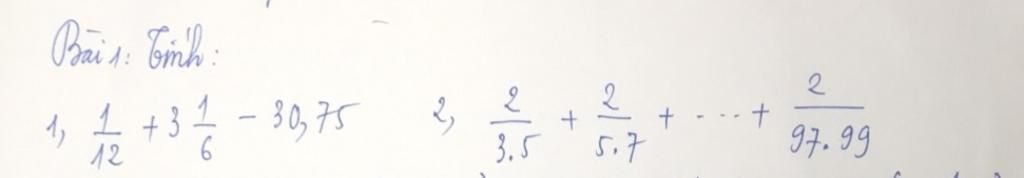 Bài 1: Tính:
1, 1/12 + 3 1/6 - 30,75 2, 2/3.5 + 2/5.7 + ... + 2/97.99